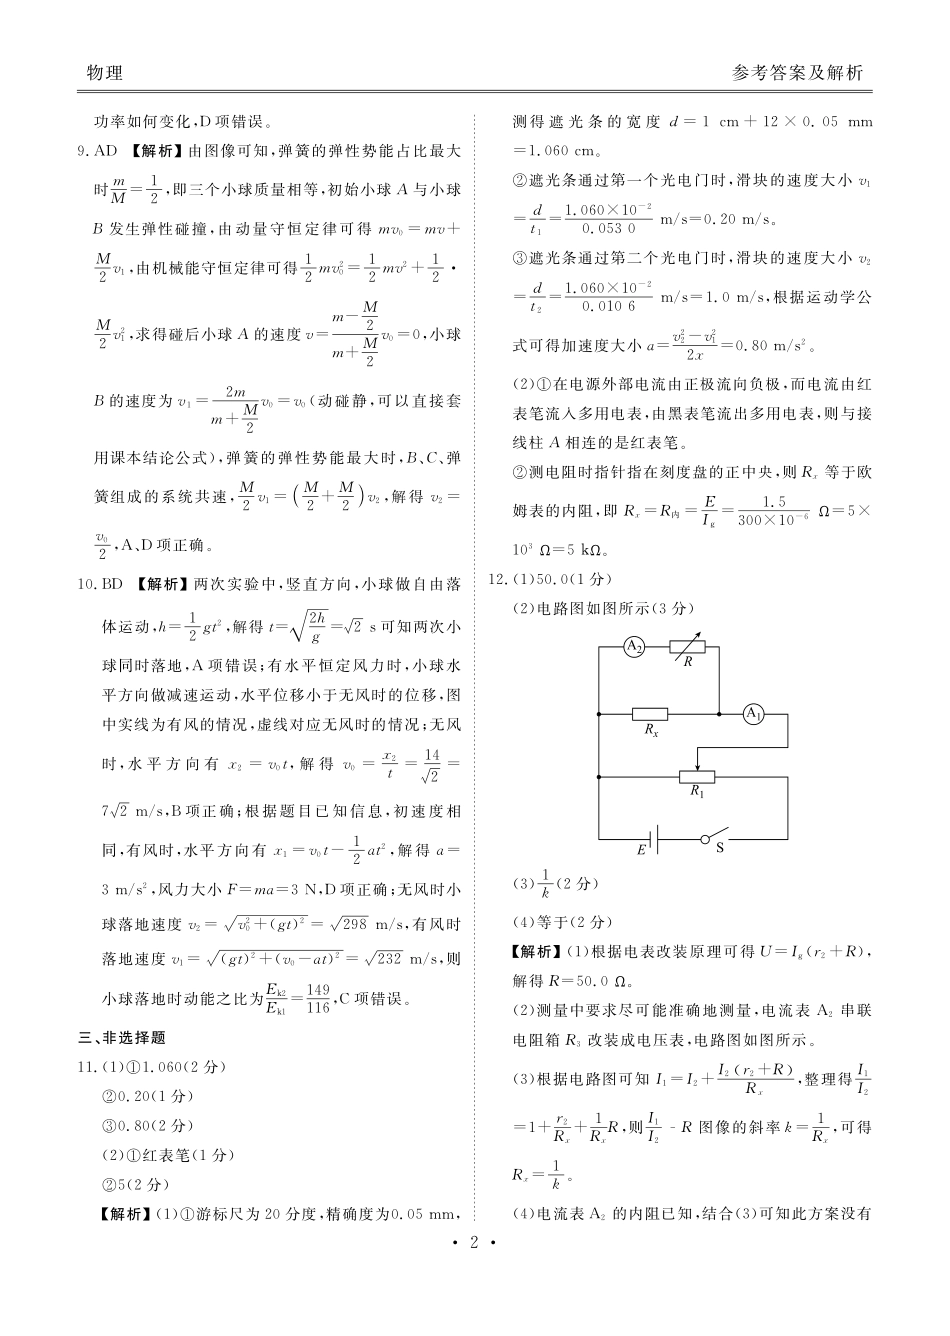 物理
参考答案及解析
功率如何变化,D 项错误。
9. AD 【解析】由图像可知,弹簧的弹性势能占比最大
时 m/M = 1/2,即三个小球质量相等,初始小球 A 与小球
B 发生弹性碰撞,由动量守恒定律可得 mv₀ = mv +
M/2 v₁,由机械能守恒定律可得 1/2 mv₀² = 1/2 mv² + 1/2 ·
M/2 v₁²,求得碰后小球 A 的速度 v = (m − M/2)/(m + M/2) v₀ = 0,小球
B 的速度为 v₁ = 2m/(m + M/2) v₀ = v₀(动碰静,可以直接套
用课本结论公式),弹簧的弹性势能最大时,B、C、弹
簧组成的系统共速,M/2 v₁ = (M/2 + M/2) v₂,解得 v₂ =
v₀/2,A、D 项正确。
10. BD 【解析】两次实验中,竖直方向,小球做自由落
体运动,h = 1/2 gt²,解得 t = √(2h/g) = √2 s 可知两次小
球同时落地,A 项错误;有水平恒定风力时,小球水
平方向做减速运动,水平位移小于无风时的位移,图
中实线为有风的情况,虚线对应无风时的情况;无风
时,水平方向有 x₂ = v₀t,解得 v₀ = x₂/t = 14/√2 =
7√2 m/s,B 项正确;根据题目已知信息,初速度相
同,有风时,水平方向有 x₁ = v₀t − 1/2 at²,解得 a =
3 m/s²,风力大小 F=ma=3 N,D 项正确;无风时小
球落地速度 v₂ = √(v₀²+(gt)²) = √298 m/s,有风时
落地速度 v₁ = √((gt)²+(v₀−at)²) = √232 m/s,则
小球落地时动能之比为 Eₖ₂/Eₖ₁ = 149/116,C 项错误。
三、非选择题
11. (1)①1.060(2 分)
②0.20(1 分)
③0.80(2 分)
(2)①红表笔(1 分)
②5(2 分)
【解析】(1)①游标尺为 20 分度,精确度为0.05 mm,
测得遮光条的宽度 d = 1 cm + 12 × 0.05 mm
=1.060 cm。
②遮光条通过第一个光电门时,滑块的速度大小 v₁
= d/t₁ = (1.060×10⁻²)/(0.053 0) m/s=0.20 m/s。
③遮光条通过第二个光电门时,滑块的速度大小 v₂
= d/t₂ = (1.060×10⁻²)/(0.010 6) m/s=1.0 m/s,根据运动学公
式可得加速度大小 a = (v₂²−v₁²)/(2x) =0.80 m/s²。
(2)①在电源外部电流由正极流向负极,而电流由红
表笔流入多用电表,由黑表笔流出多用电表,则与接
线柱 A 相连的是红表笔。
②测电阻时指针指在刻度盘的正中央,则 Rₓ 等于欧
姆表的内阻,即 Rₓ=R内 = E/I_g = 1.5/(300×10⁻⁶) Ω=5×
10³ Ω=5 kΩ。
12. (1)50.0(1 分)
(2)电路图如图所示(3 分)
A₂
R
A₁
Rₓ
R₁
E
S
(3) 1/k (2 分)
(4)等于(2 分)
【解析】(1)根据电表改装原理可得 U=I_g(r₂+R),
解得 R=50.0 Ω。
(2)测量中要求尽可能准确地测量,电流表 A₂ 串联
电阻箱 R₃ 改装成电压表,电路图如图所示。
(3)根据电路图可知 I₁=I₂+ I₂(r₂+R)/Rₓ,整理得 I₁/I₂
=1+ r₂/Rₓ + 1/Rₓ R,则 I₁/I₂ - R 图像的斜率 k= 1/Rₓ,可得
Rₓ= 1/k。
(4)电流表 A₂ 的内阻已知,结合(3)可知此方案没有
• 2 •